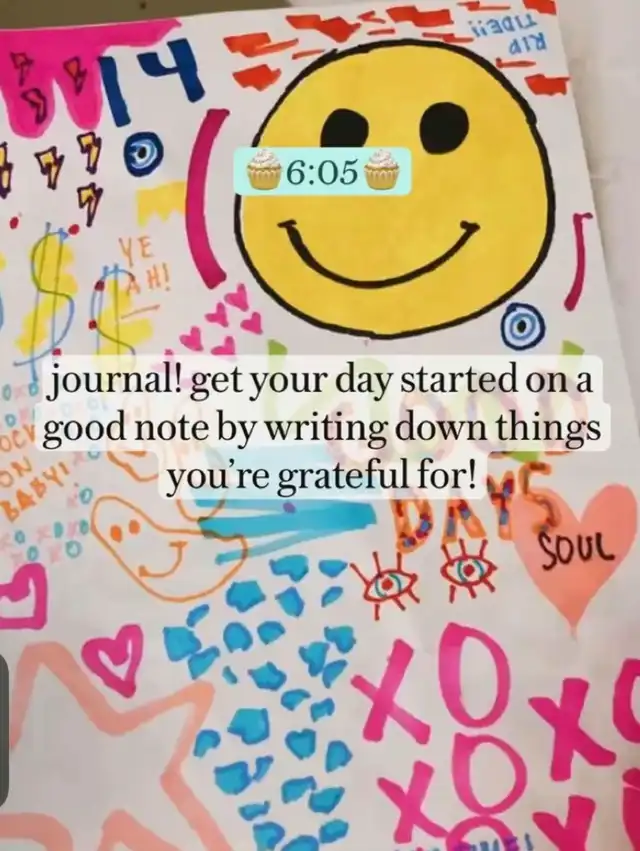 14
RIP
TIDE!!
🧁6:05🧁
YE
AH!
journal! get your day started on a
good note by writing down things
you’re grateful for!
ON
BABY!
DAYS
SOUL
XOX
XO